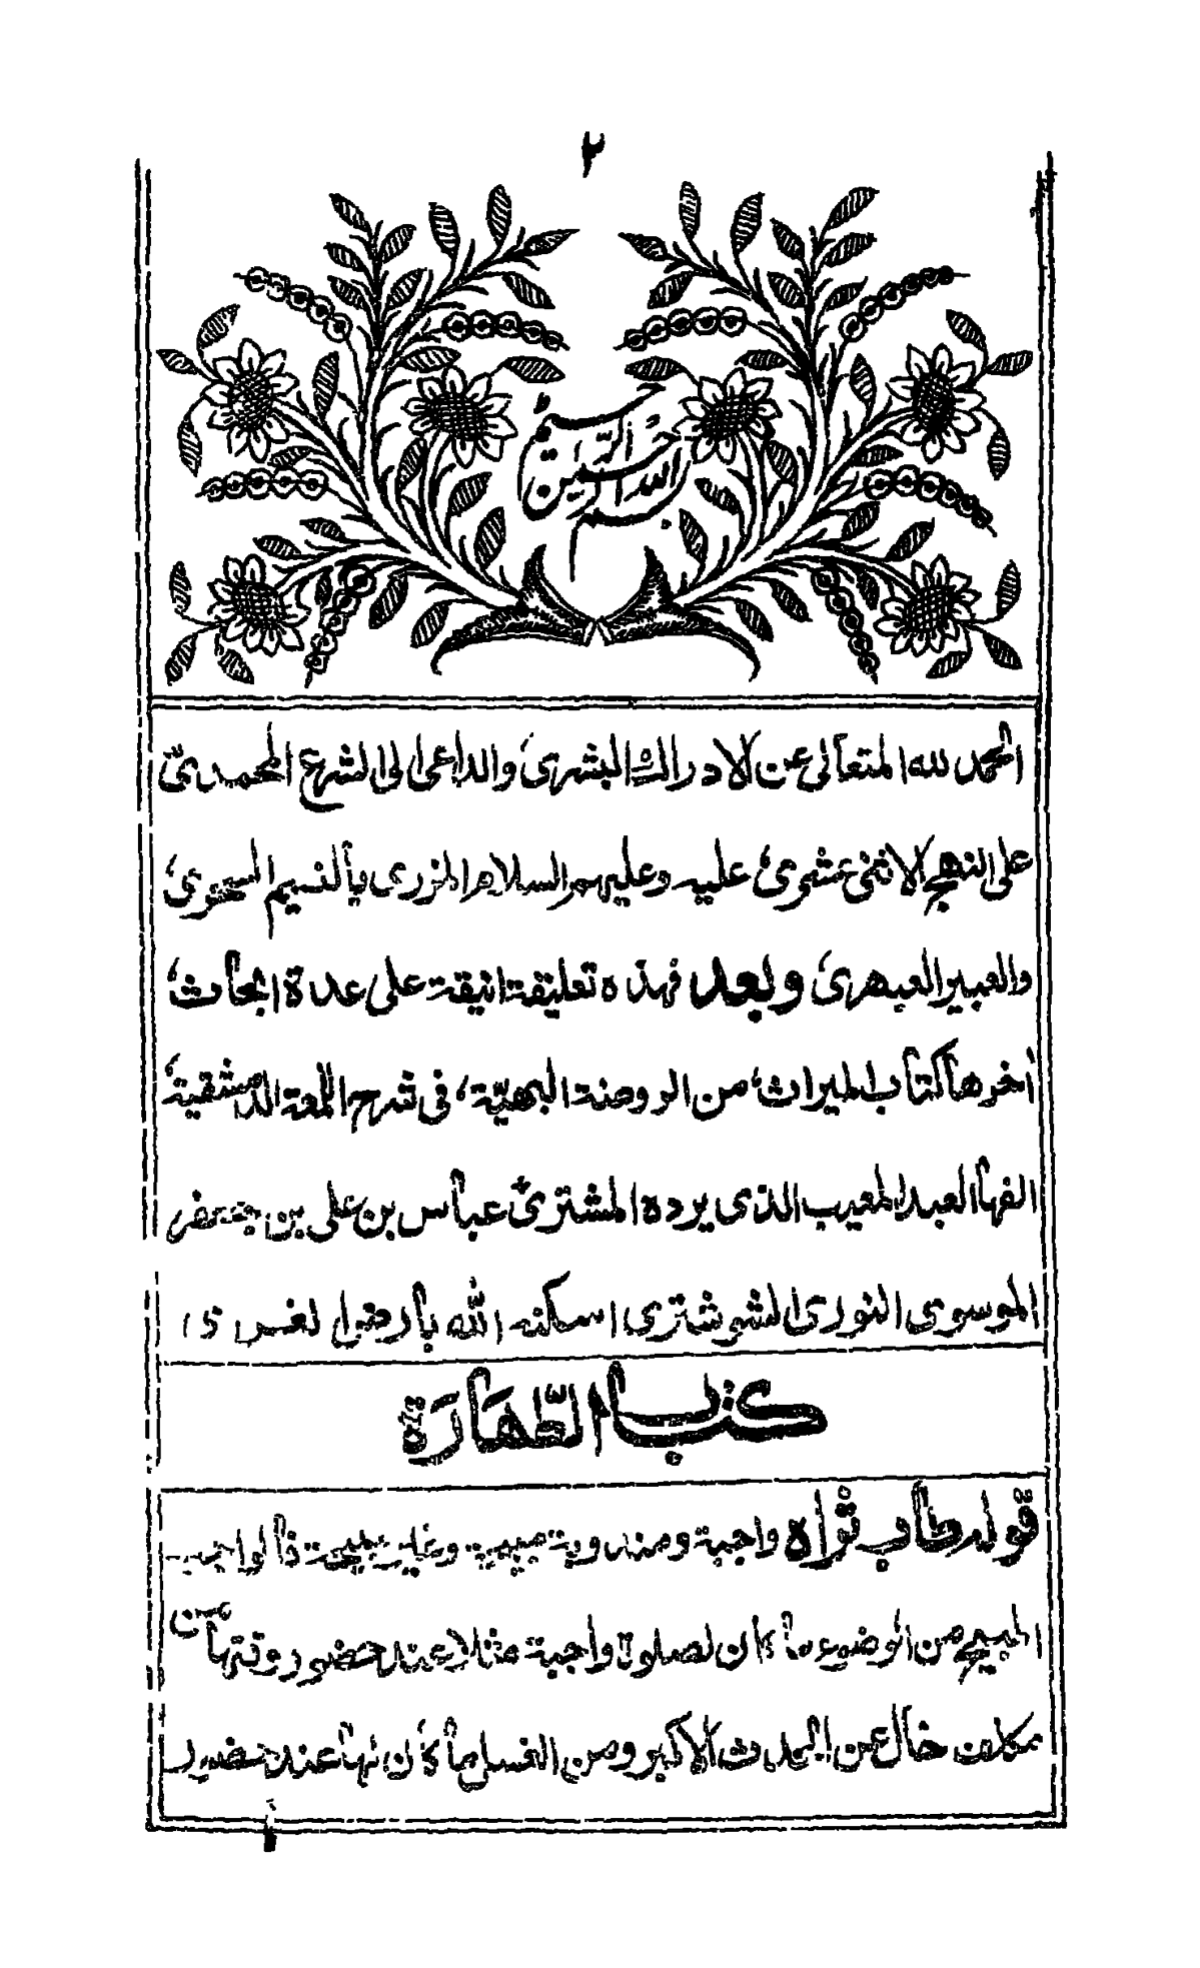 ٢
بسم الله الرحمن الرحيم
الحمد لله المتعالى عن الادراك البشرى، والداعى الى الشرع المحمدىّ
على النهج الاثنى عشرى، عليه وعليهم السلام المزرى بالنسيم السحرى،
والعبير العبهرى، وبعد فهذه تعليقة انيقة على عدة ابحاث،
أخرها كتاب الميراث، من الروضة البهيّة، فى شرح اللمعة الدمشقية،
الفها العبد المعيب الذى يرده المشترى عباس بن على بن جعفر
الموسوى النورى الشوشترى اسكنه الله بارض الغرى
كتاب الطّهارة
قوله طاب ثراه واجبة ومندوبة مبيحة وغير مبيحة فالواجب
المبيح من الوضوء ما كان لصلوة واجبة مثلا عند حضور وقتها من
مكلف خال عن الحدث الاكبر ومن الغسل ما كان لها عند حضور